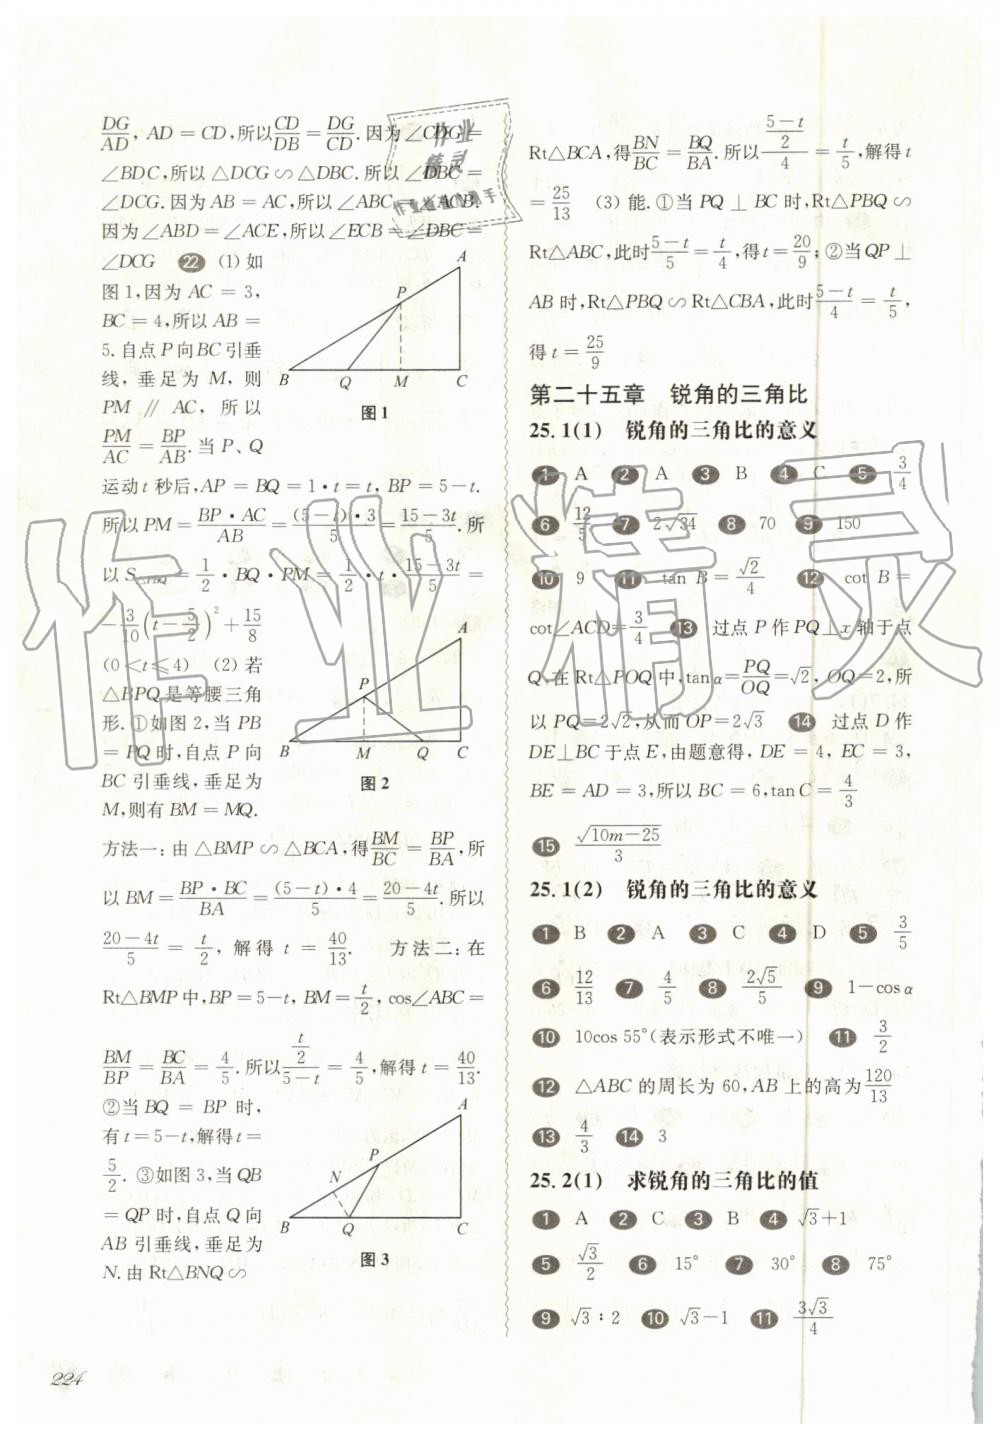 DG/AD, AD = CD,所以CD/DB = DG/CD.因为∠CDG =
∠BDC,所以△DCG∽△DBC.所以∠DBC =
∠DCG.因为AB = AC,所以∠ABC = ∠ACB.
因为∠ABD = ∠ACE,所以∠ECB = ∠DBC =
∠DCG 22 (1) 如
图1,因为AC = 3,
BC = 4,所以AB =
5.自点P向BC引垂
线,垂足为M,则
PM ∥ AC,所以
PM/AC = BP/AB.当P、Q
运动t秒后,AP = BQ = 1·t = t, BP = 5-t.
所以PM = BP·AC/AB = (5-t)·3/5 = 15-3t/5.所
以S△PBQ = 1/2·BQ·PM = 1/2·t·15-3t/5 =
-3/10(t-5/2)²+15/8
(0<t≤4) (2) 若
△BPQ是等腰三角
形.①如图2,当PB
= PQ时,自点P向
BC引垂线,垂足为
M,则有BM = MQ.
方法一:由△BMP∽△BCA,得BM/BC = BP/BA,所
以BM = BP·BC/BA = (5-t)·4/5 = 20-4t/5.所以
20-4t/5 = t/2, 解得 t = 40/13. 方法二:在
Rt△BMP中,BP = 5-t, BM = t/2, cos∠ABC =
BM/BP = BC/BA = 4/5.所以 t/2/5-t = 4/5,解得t = 40/13.
②当BQ = BP时,
有t = 5-t,解得t =
5/2. ③如图3,当QB
= QP时,自点Q向
AB引垂线,垂足为
N.由Rt△BNQ∽
A
P
B Q M C
图1
A
P
B M Q C
图2
A
P
N
B Q C
图3
Rt△BCA,得BN/BC = BQ/BA.所以 5-t/2/4 = t/5,解得t
= 25/13 (3) 能.①当PQ⊥BC时,Rt△PBQ∽
Rt△ABC,此时5-t/5 = t/4,得t = 20/9;②当QP⊥
AB时,Rt△PBQ∽Rt△CBA,此时5-t/4 = t/5,
得t = 25/9
第二十五章 锐角的三角比
25.1(1) 锐角的三角比的意义
1 A 2 A 3 B 4 C 5 3/4
6 12/5 7 2√34 8 70 9 150
10 9 11 tan B = √2/4 12 cot B =
cot∠ACD = 3/4 13 过点P作PQ⊥x轴于点
Q,在Rt△POQ中,tanα = PQ/OQ = √2, OQ = 2,所
以PQ = 2√2,从而OP = 2√3 14 过点D作
DE⊥BC于点E,由题意得, DE = 4, EC = 3,
BE = AD = 3,所以BC = 6,tan C = 4/3
15 √10m-25/3
25.1(2) 锐角的三角比的意义
1 B 2 A 3 C 4 D 5 3/5
6 12/13 7 4/5 8 2√5/5 9 1-cosα
10 10cos 55°(表示形式不唯一) 11 3/2
12 △ABC的周长为60,AB上的高为120/13
13 4/3 14 3
25.2(1) 求锐角的三角比的值
1 A 2 C 3 B 4 √3+1
5 √3/2 6 15° 7 30° 8 75°
9 √3:2 10 √3-1 11 3√3/4
224
作业精灵